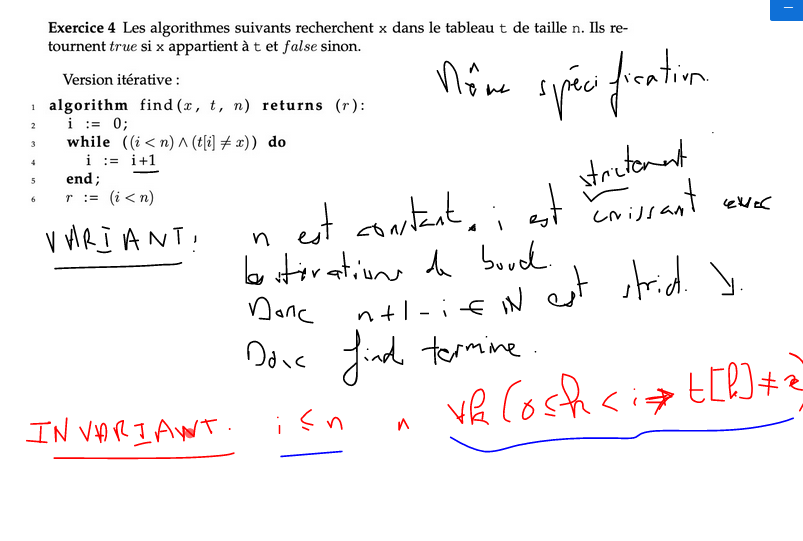 Exercice 4 Les algorithmes suivants recherchent x dans le tableau t de taille n. Ils re-
tournent true si x appartient à t et false sinon.
Même spécification.
Version itérative :
1 algorithm find(x, t, n) returns (r):
2 i := 0;
3 while ((i < n) ∧ (t[i] ≠ x)) do
4 i := i+1
5 end;
6 r := (i < n)
strictement
VARIANT: n est constant, i est croissant avec
les itérations de boucl.
Donc n+1-i ∈ ℕ est strict. ↘.
Donc find termine.
INVARIANT. i ≤ n ∧ ∀k (0≤k<i ⇒ t[k]≠x)